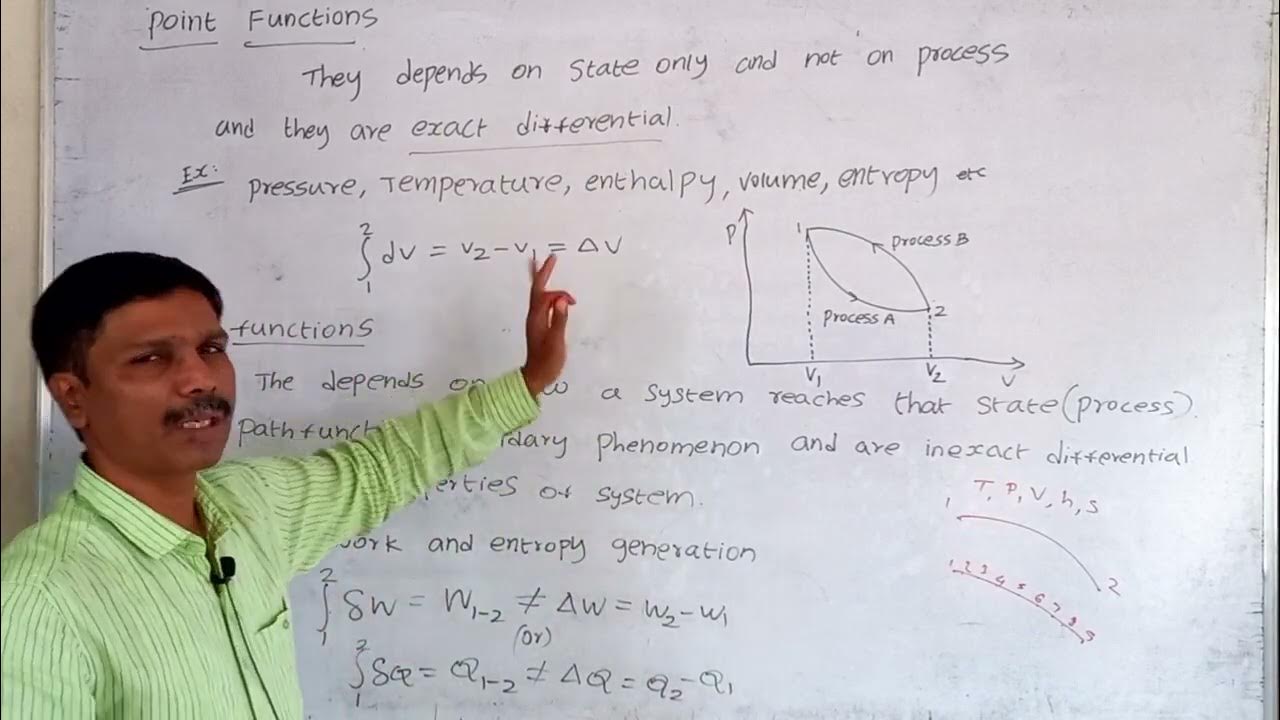 Point Functions
They depends on state only and not on process
and they are exact differential.
Ex: pressure, Temperature, enthalpy, volume, entropy etc
2
∫ dv = v2 - v1 = Δv
1
P
1
process B
process A
2
V1
V2
V
functions
The depends on a system reaches that state (process).
phenomenon and are inexact differential
of system.
and entropy generation
2
∫ δW = W1-2 ≠ ΔW = W2 - W1
1
(or)
2
∫ δQ = Q1-2 ≠ ΔQ = Q2 - Q1
1
T, P, V, h, s
1
2
1 2 3 4 5 6 7 8 9